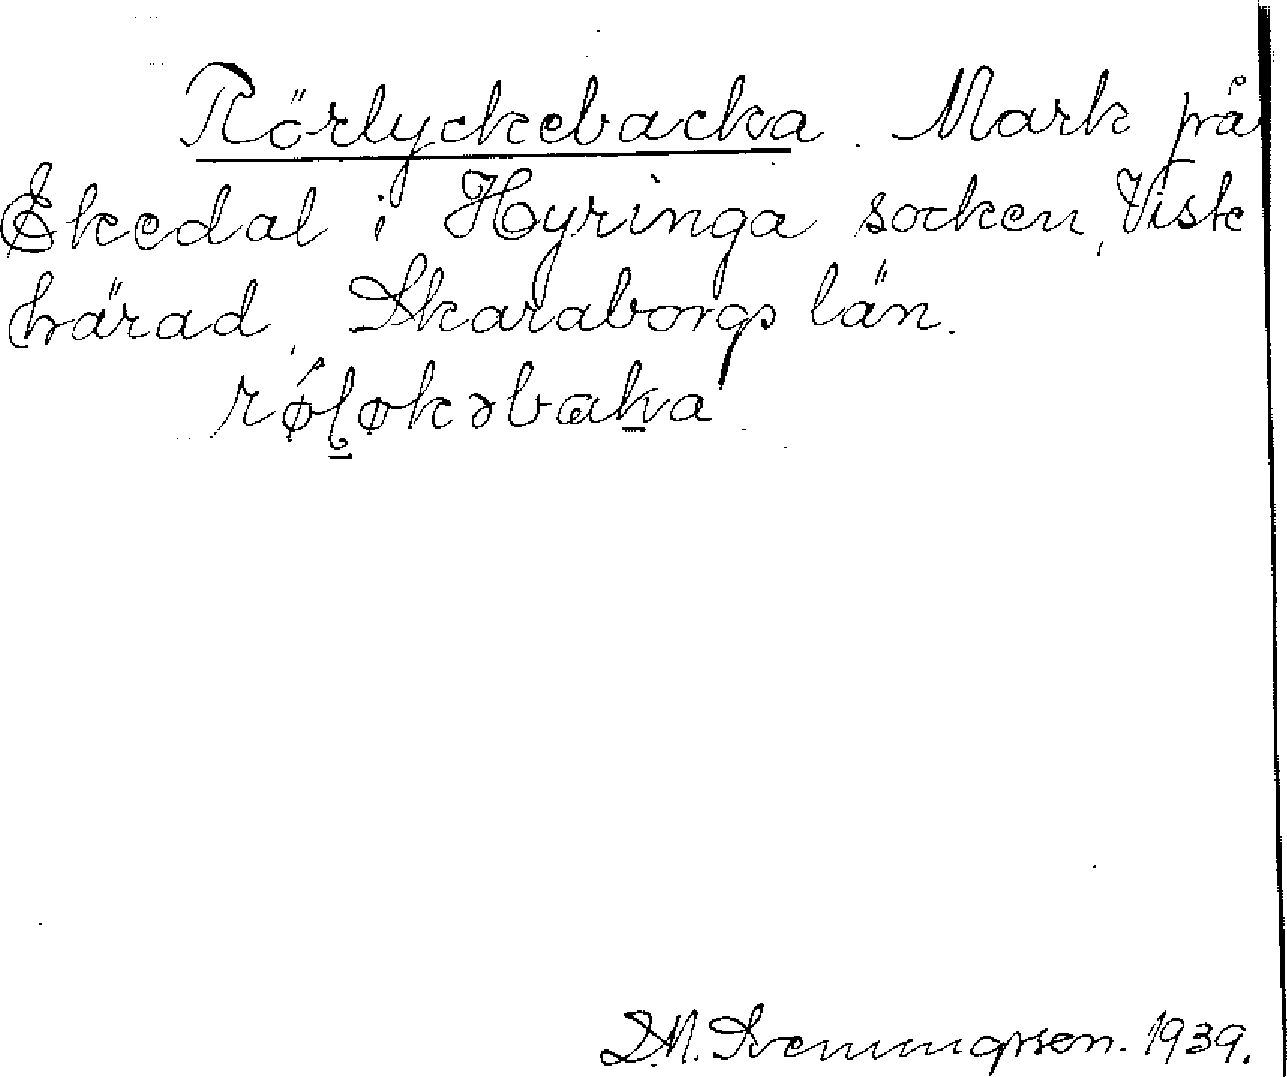 Rörlyckebacka. Mark på
Ekedal i Hyringa socken, Viste
härad, Skaraborgs län.
D.M. Svenningsson. 1939.